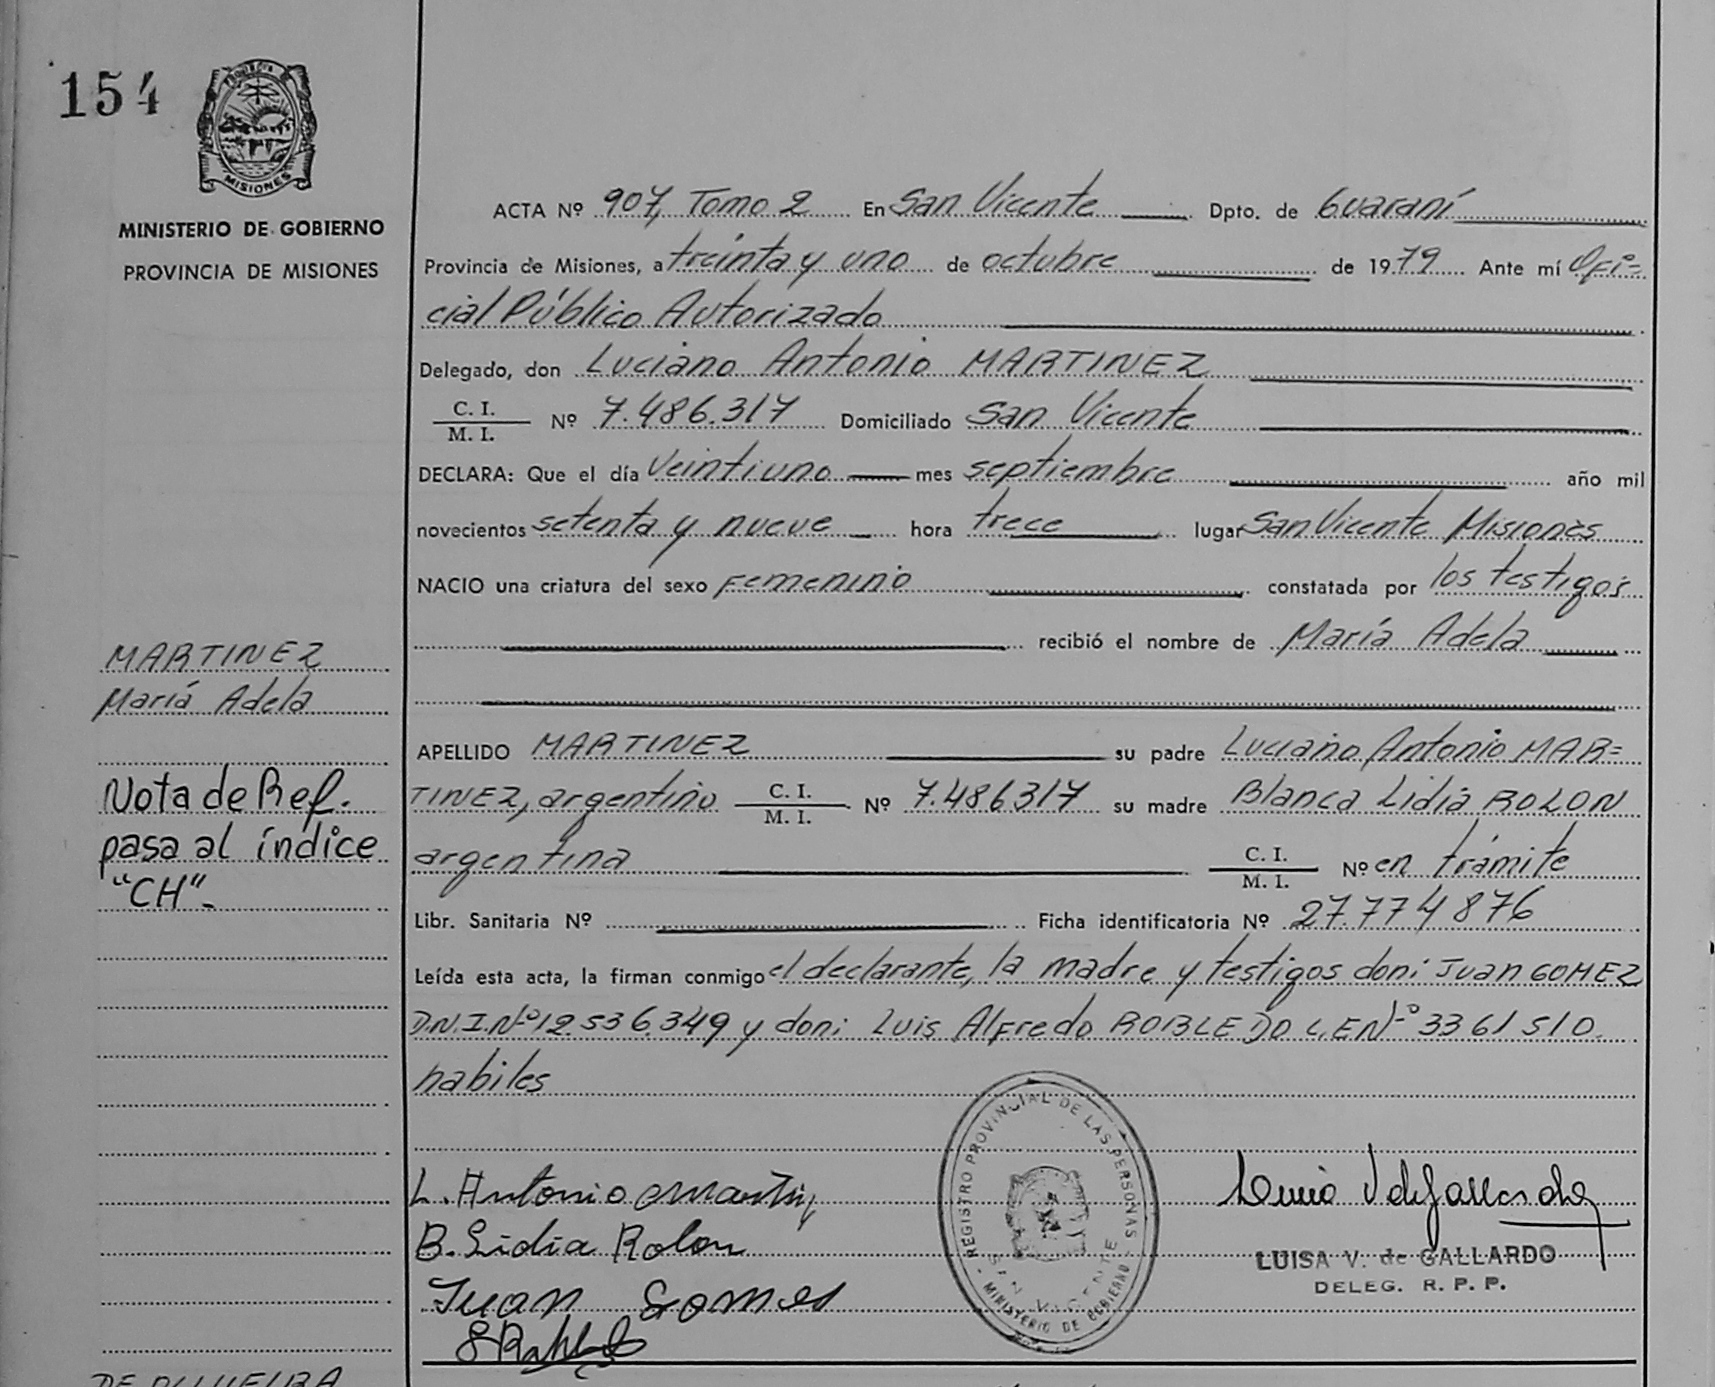 154
PROVINCIA DE
MISIONES
MINISTERIO DE GOBIERNO
PROVINCIA DE MISIONES
MARTINEZ
María Adela
Nota de Ref.
pasa al índice
"CH"-
ACTA Nº 907, Tomo 2 En San Vicente Dpto. de Guaraní
Provincia de Misiones, a treinta y uno de octubre de 1979 Ante mí Ofi=
cial Público Autorizado
Delegado, don Luciano Antonio MARTINEZ
C. I.
M. I. Nº 7.486.317 Domiciliado San Vicente
DECLARA: Que el día Veintiuno mes septiembre año mil
novecientos setenta y nueve hora trece lugar San Vicente Misiones
NACIO una criatura del sexo Femenino constatada por los testigos
recibió el nombre de María Adela
APELLIDO MARTINEZ su padre Luciano Antonio MAR=
TINEZ, argentino C. I. M. I. Nº 7.486317 su madre Blanca Lidia ROLON
argentina C. I. M. I. Nº en trámite
Libr. Sanitaria Nº Ficha identificatoria Nº 27.774876
Leída esta acta, la firman conmigo el declarante, la madre y testigos don: Juan GOMEZ
D.N.I.Nº 12.536.349 y don: Luis Alfredo ROBLEDO L.E.Nº 3361510
habiles
L. Antonio Martinez
B. Lidia Rolon
Juan Gomes
REGISTRO PROVINCIAL DE LAS PERSONAS
SAN VICENTE
MINISTERIO DE GOBIERNO
LUISA V. de GALLARDO
DELEG. R. P. P.